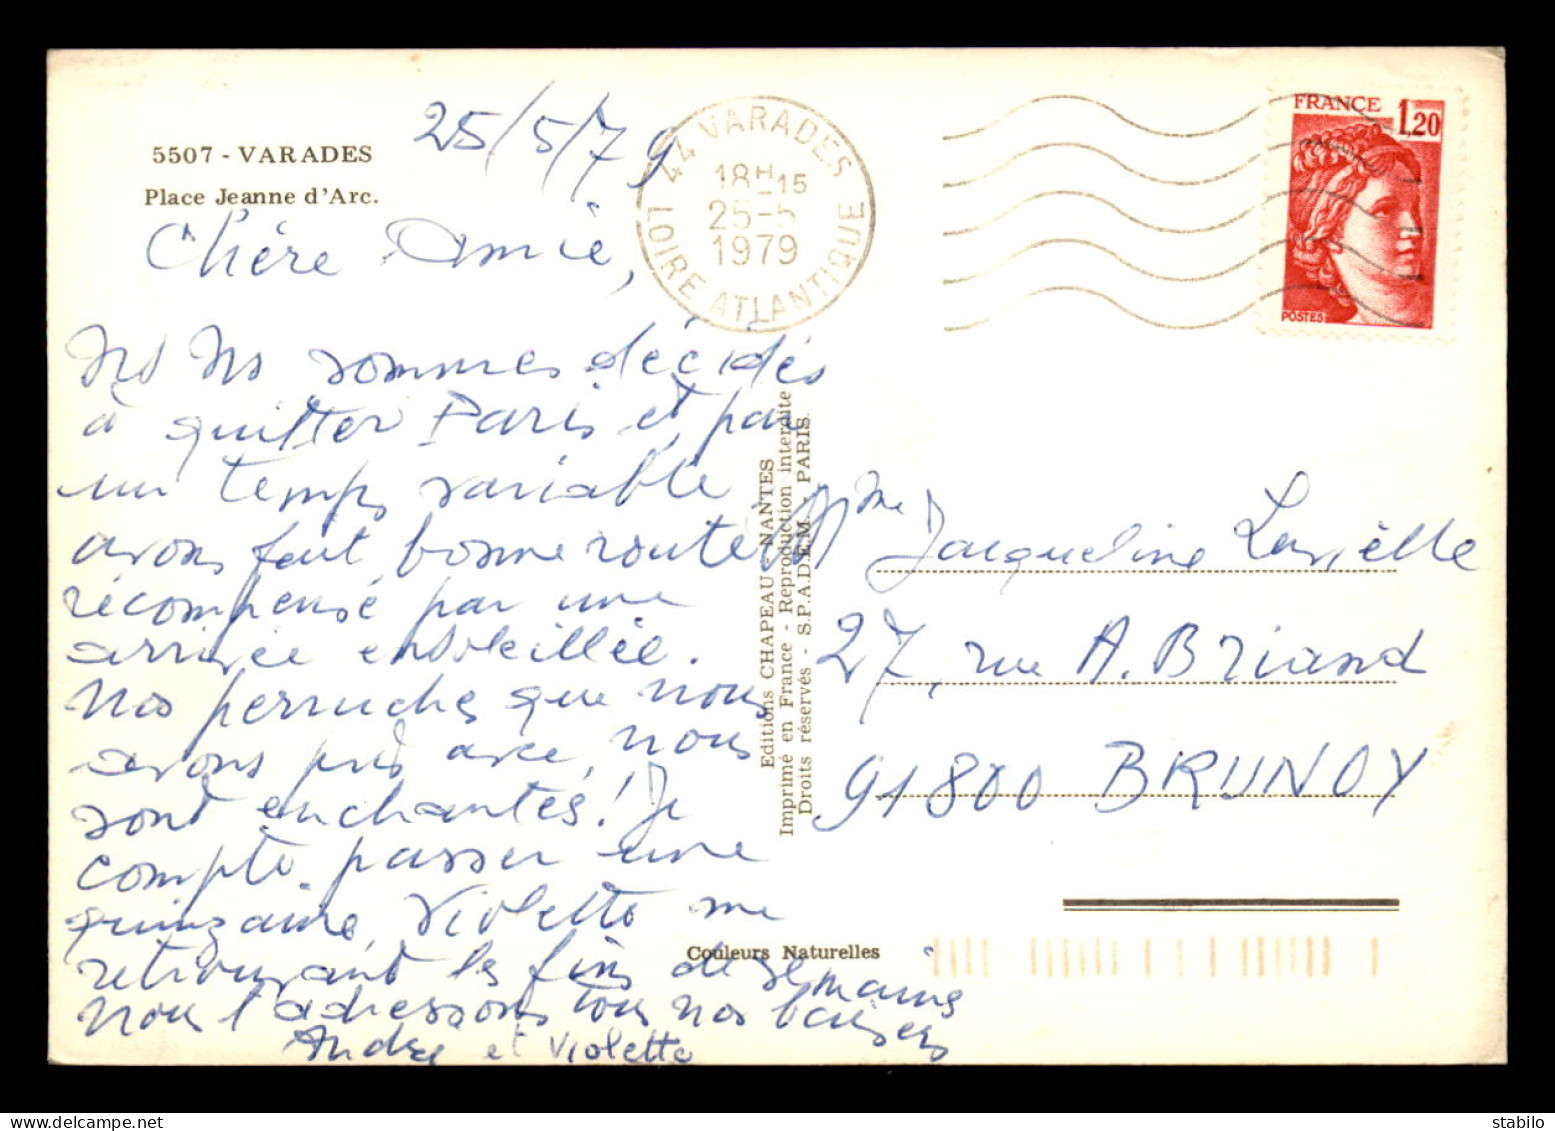 5507 - VARADES
Place Jeanne d'Arc.
25/5/79
44 VARADES
18H15
25-5
1979
LOIRE ATLANTIQUE
FRANCE 1,20
POSTES
Chère Amie,
Ns Ns sommes décidés
à quitter Paris et, par
un temps variable
avons fait bonne route
récompensé par une
arrivée ensoleillée.
Nos perruches que nous
avons pris avec nous
sont enchantés! Je
compte passer une
quinzaine, Violette me
retrouvant les fins de semaine
Nous l'adressons tous nos baisers
André et Violette
Editions CHAPEAU - NANTES
Imprimé en France - Reproduction interdite
Droits réservés - S.P.A.D.E.M. - PARIS.
Mme Jacqueline
27, rue A. Briand
91800 BRUNOY
Couleurs Naturelles
stabilo